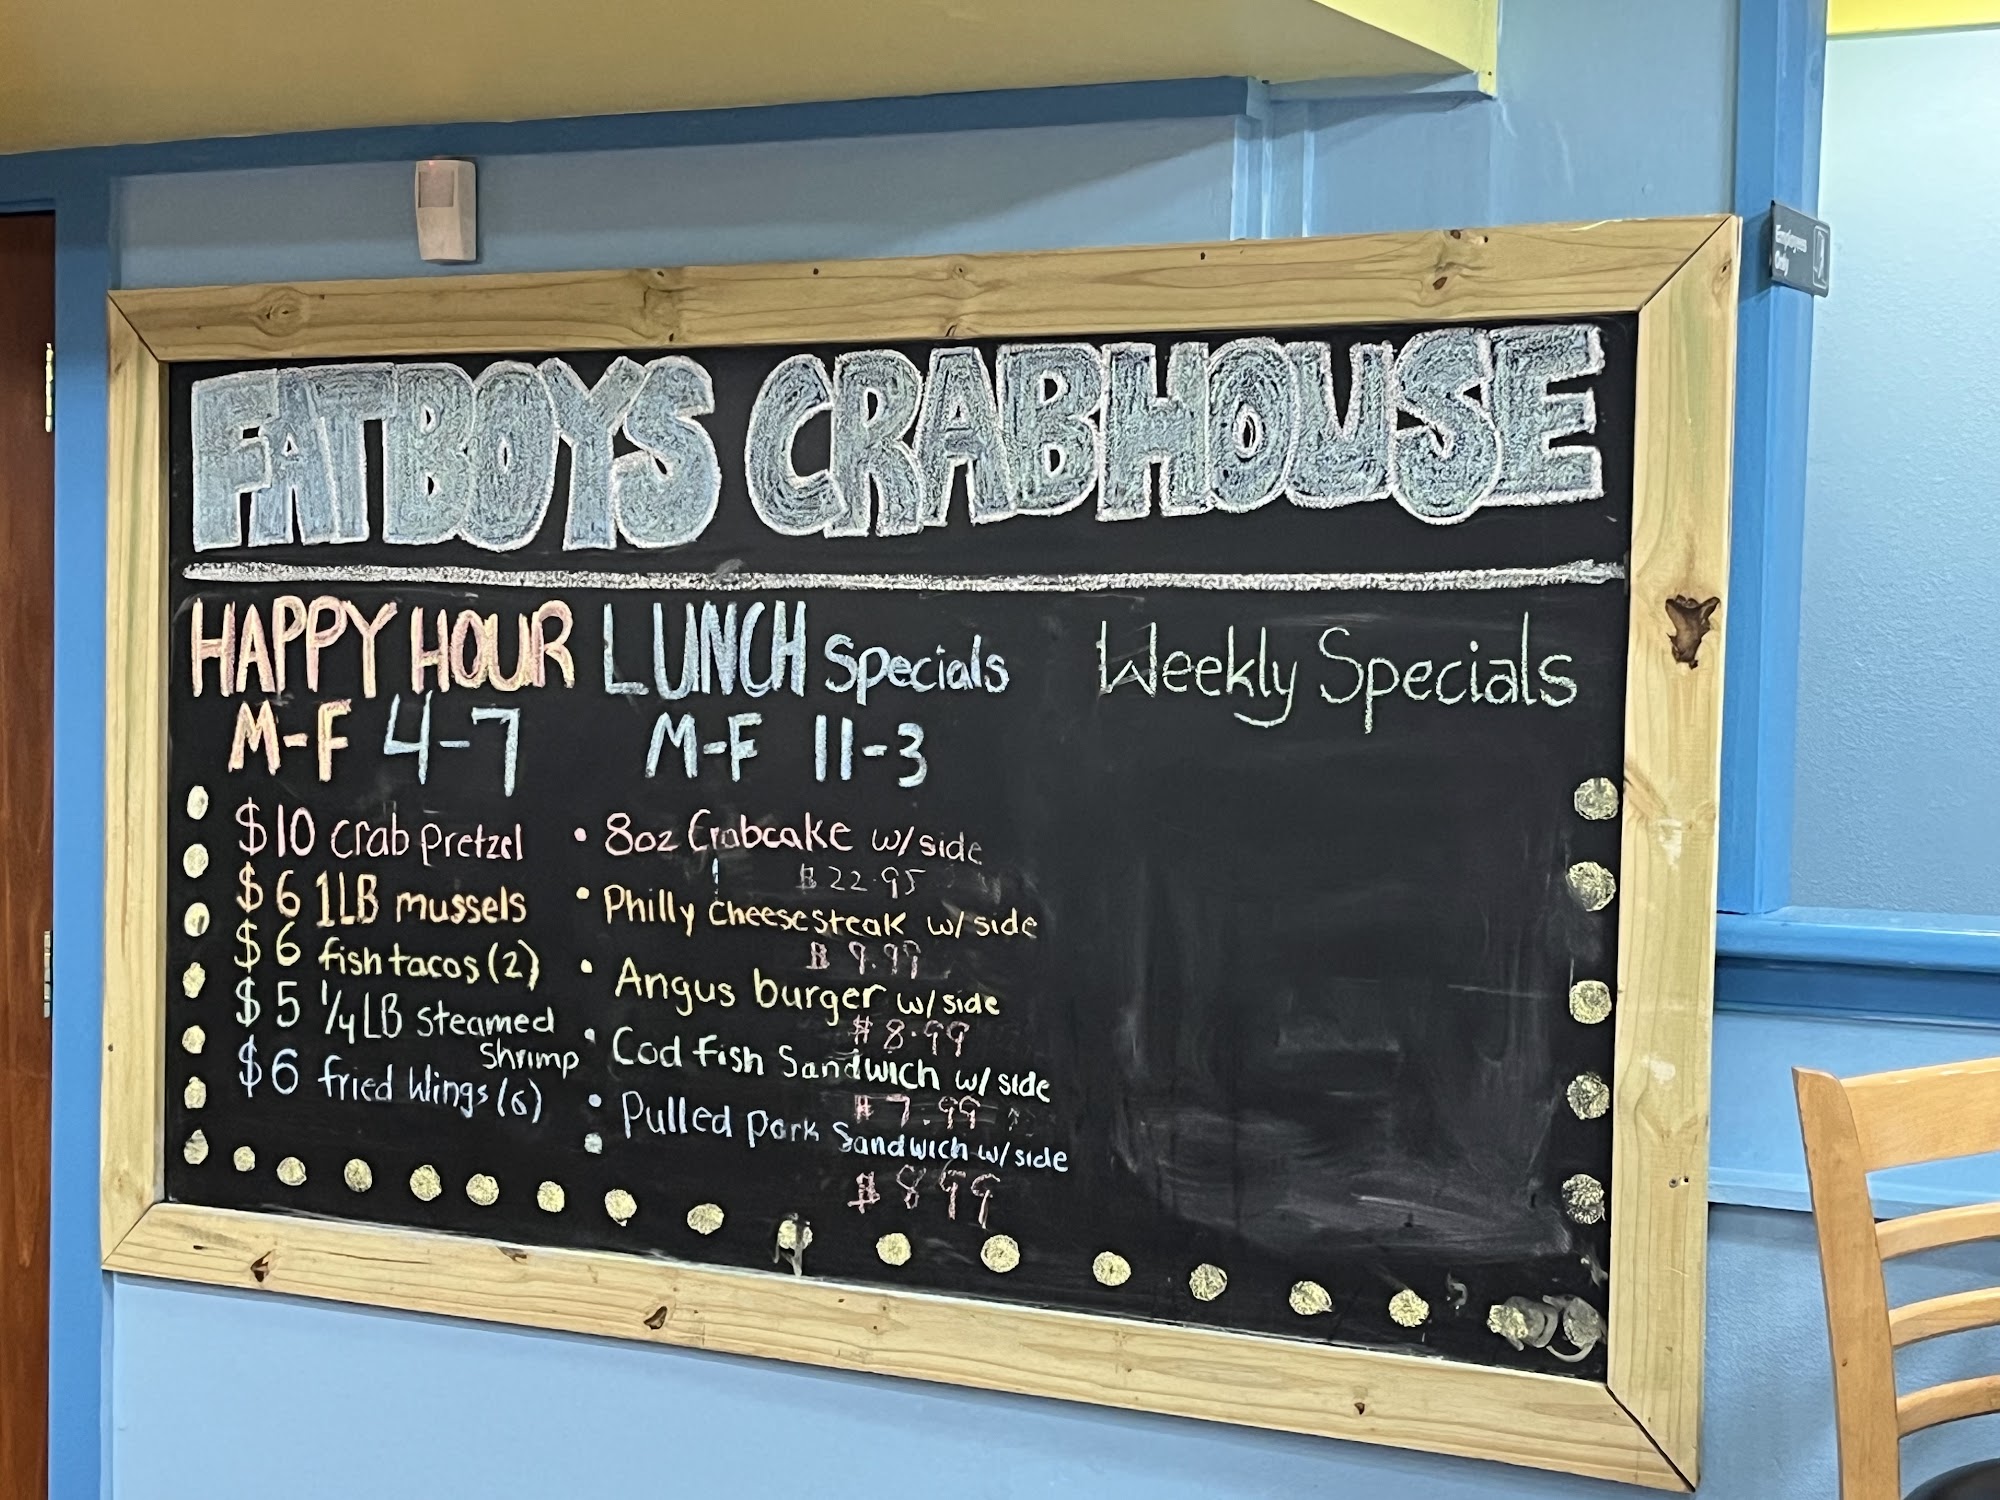 Employees
Only
FATBOYS CRABHOUSE
HAPPY HOUR
M-F 4-7
$10 crab pretzel
$6 1LB mussels
$6 fish tacos (2)
$5 1/4 LB steamed
Shrimp
$6 fried Wings (6)
LUNCH Specials
M-F 11-3
• 8oz Crabcake w/side
$22.95
• Philly cheesesteak w/side
$9.99
• Angus burger w/side
$8.99
• Cod fish Sandwich w/side
$7.99
• Pulled pork Sandwich w/side
$8.99
Weekly Specials